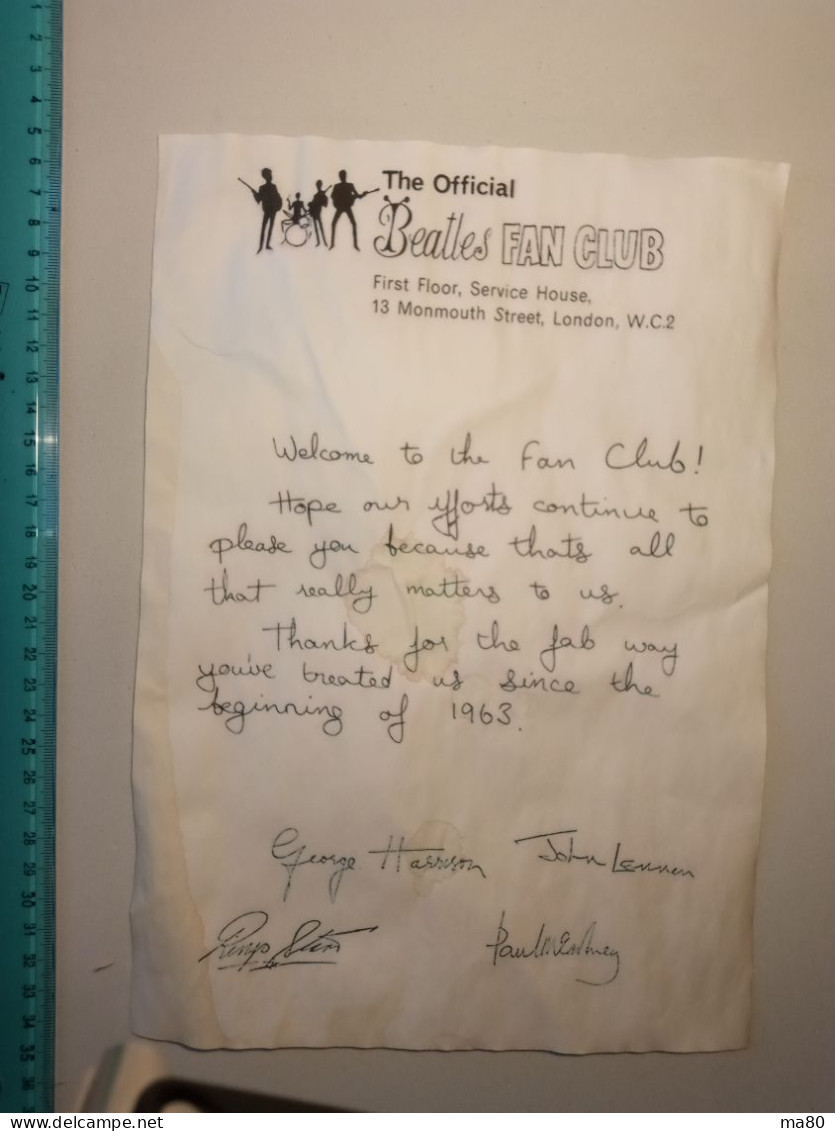 The Official
Beatles FAN CLUB
First Floor, Service House,
13 Monmouth Street, London, W.C.2
Welcome to the Fan Club!
Hope our efforts continue to
please you because thats all
that really matters to us.
Thanks for the fab way
you've treated us since the
beginning of 1963.
George Harrison John Lennon
Ringo Starr Paul McCartney
1
2
3
4
5
6
7
8
9
10
11
12
13
14
15
16
17
18
19
20
21
22
23
24
25
26
27
28
29
30
31
32
33
34
35
36
delcampe.net
ma80